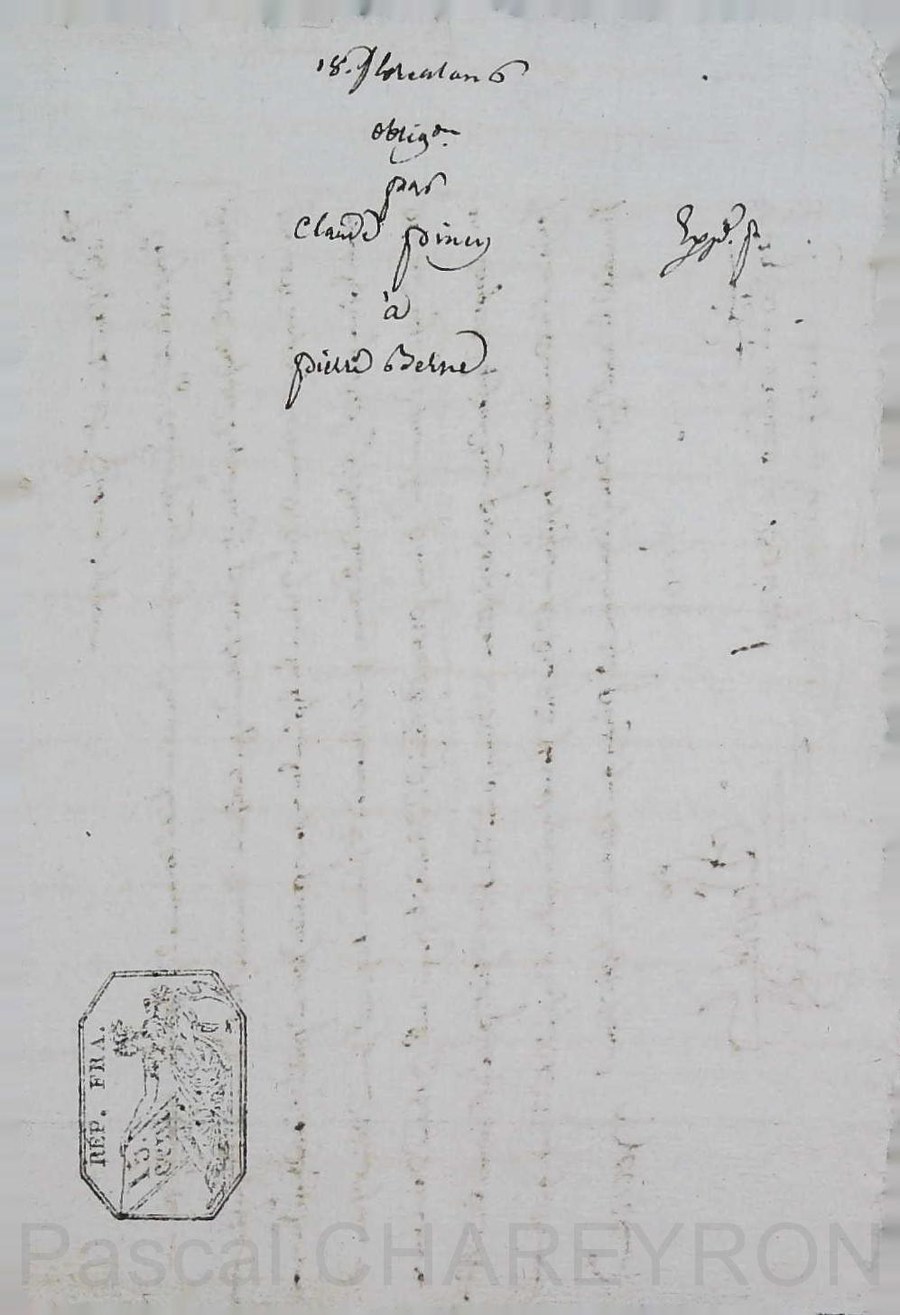 18. floreal an 6
obligon.
par
Claude piney
à
pierre Berne
Expé.
REP. FRA.
Pascal CHAREYRON